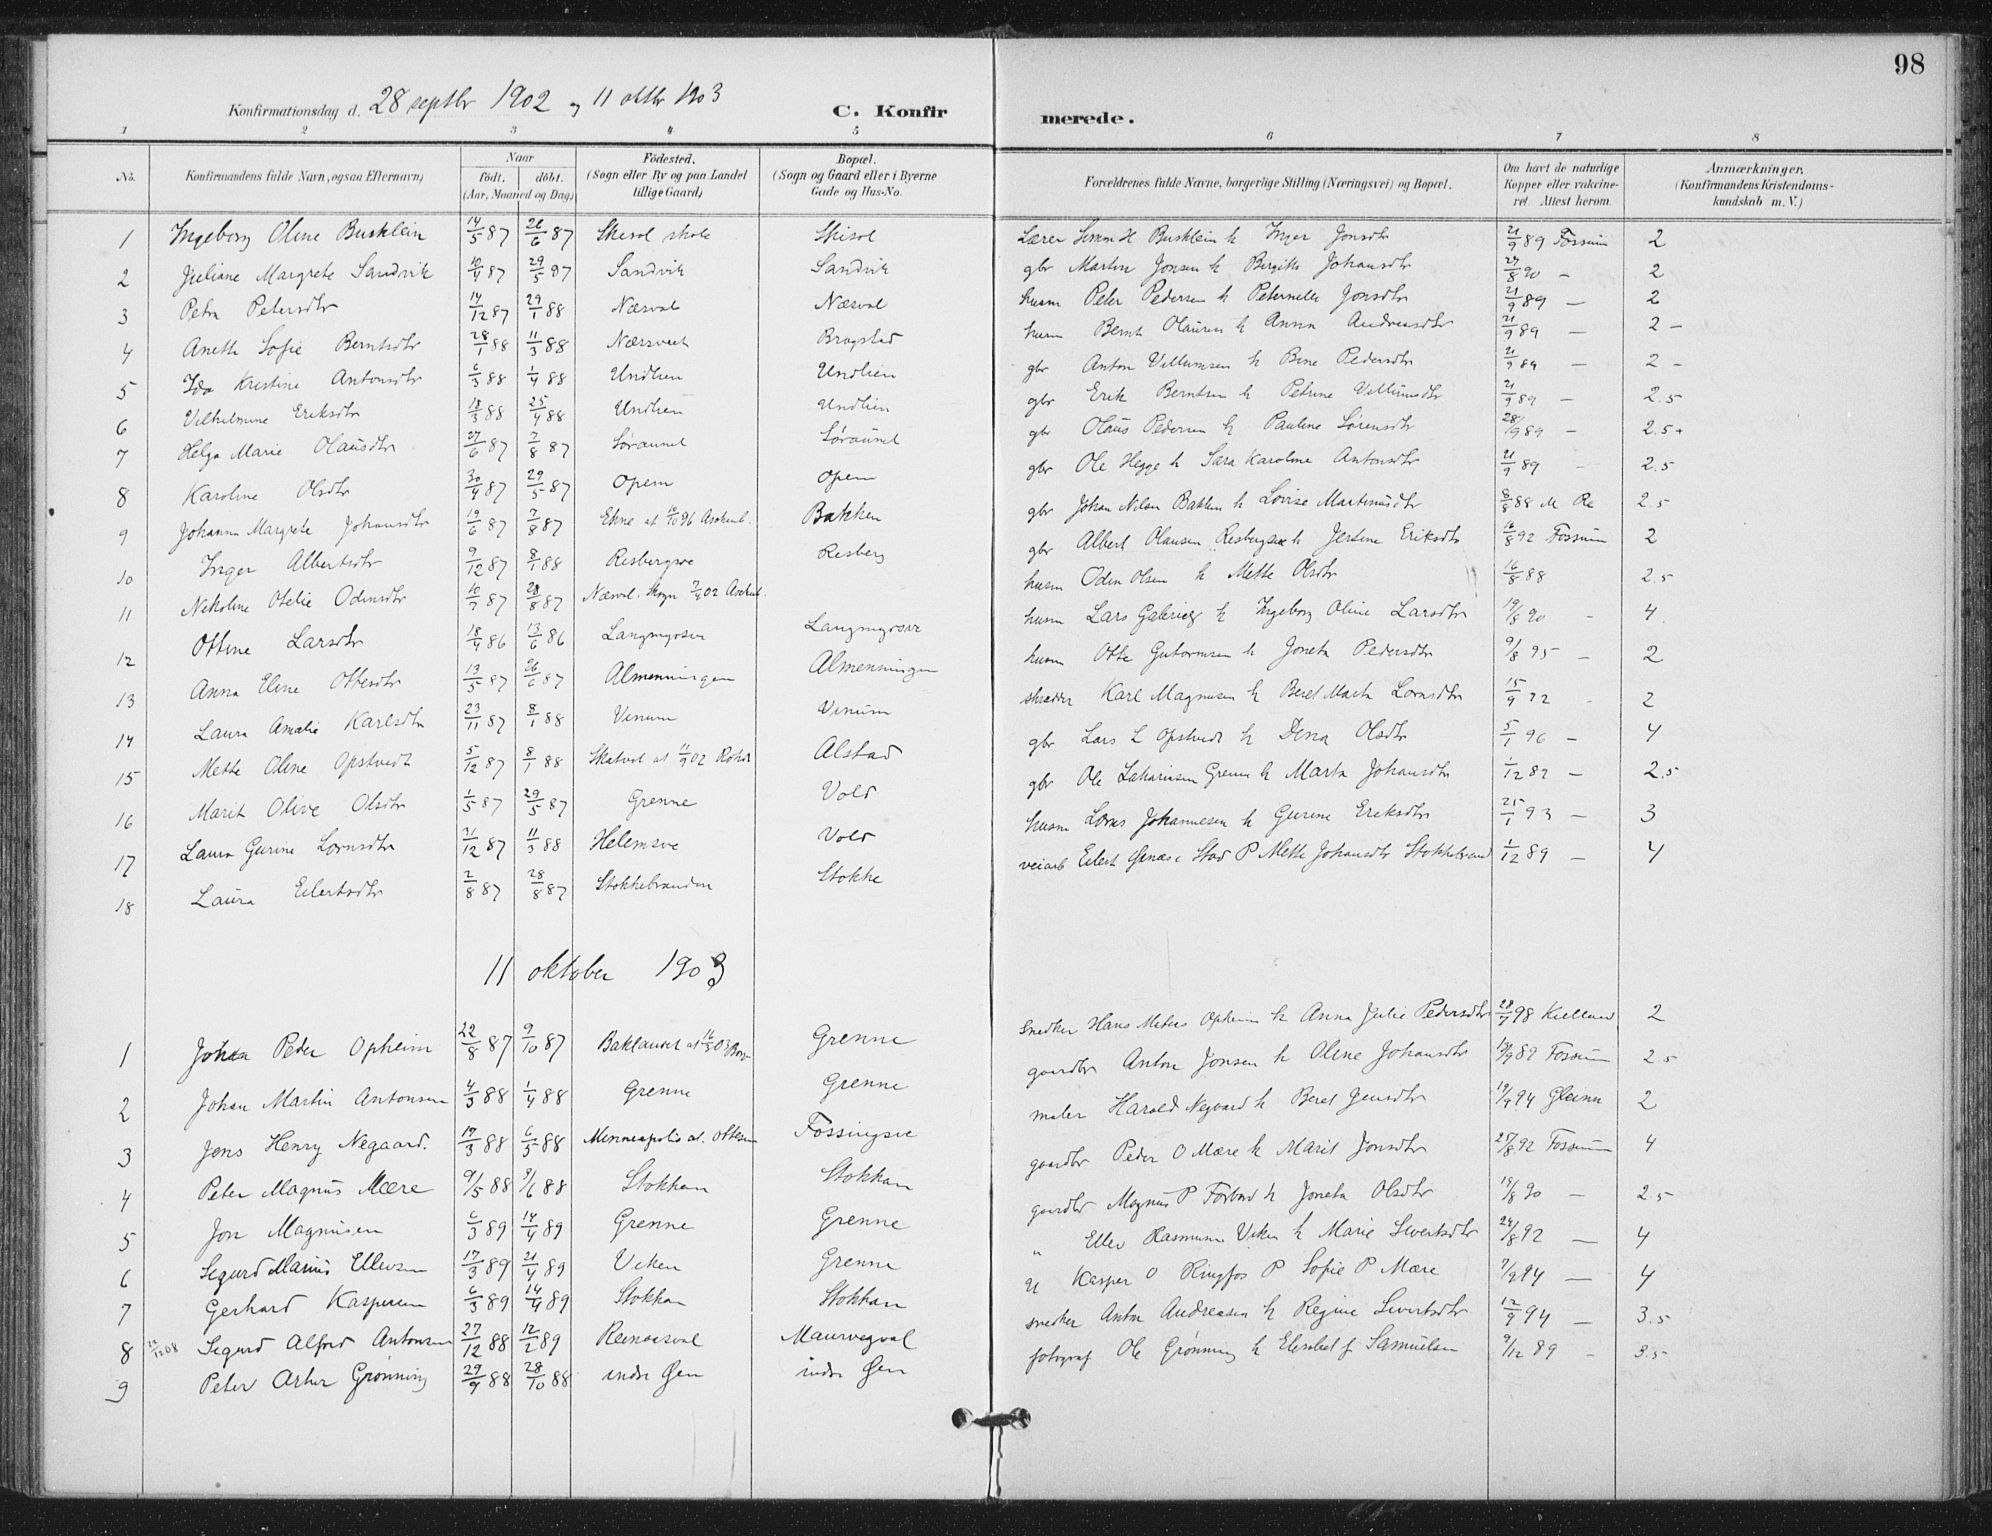 98
Konfirmationsdag d. 28 septbr 1902 og 11 oktbr 1903 C. Konfirmerede.
1 2 3 4 5 6 7 8
No. Konfirmandens fulde Navn, ogsaa Efternavn) Naar født. døbt. (Aar, Maaned og Dag) Fødested. (Sogn eller By og paa Landet tillige Gaard) Bopæl. (Sogn og Gaard eller i Byerne Gade og Hus-No. Forældrenes fulde Navne, borgerlige Stilling (Næringsvei) og Bopæl. Om havt de naturlige Kopper eller vakcineret. Attest herom. Anmærkninger. (Konfirmandens Kristendomskundskab m. V.)
1 Ingeborg Oline Busklein 14/5 87 26/6 87 Skisol skole Skisol Lærer H Busklein h Inger Jonsdtr 21/9 89 Fossum 2
2 Juliane Margrete Sandvik 10/4 87 29/5 87 Sandvik Sandvik gbr Martin Jonsen h Birgitte Johansdtr 27/8 90 - 2
3 Petra Petersdtr 14/12 87 29/1 88 Næsvol Næsvol husm Peter Pedersen h Peternelle Jonsdtr 21/9 89 - 2
4 Aneth Sofie Berntsdtr 28/1 88 11/3 88 Bragstad husm Bernt Olausen h Anna Andreasdtr 21/9 89 - 2 -
5 Ida Kristine Antonsdtr 6/3 88 1/4 88 Undlien Undlien gbr Anton Villumsen h Bine Pedersdtr 21/9 89 - 2 -
6 Vilhelmine Eriksdtr 18/3 88 25/4 88 Undlien Undlien gbr Erik Berntsen h Petrine Villumsdtr 21/9 89 - 2.5
7 Helga Marie Olausdtr 27/6 87 7/8 87 Søraunet Søraunet gbr Olaus Pedersen h Pauline Sørensdtr 28/9 89 - 2.5+
8 Karoline Olsdtr 30/4 87 29/5 87 Opem Opem gbr Ole Hegge h Sara Karoline Antonsdtr 21/9 89 - 2.5
9 Johanna Margrete Johansdtr 19/6 87 7/8 87 Ekne at 96 Bakken gbr Johan Nilsen Bakken h Lovise Martinusdtr 8/8 88 M Re 2.5
10 Inger Albertsdtr 9/12 87 8/1 88 Resbergsve Resberg gbr Albert Olausen h Jersine Eriksdtr 16/8 92 Fossum 2
11 Nikoline Otelie Odinsdtr 10/7 87 28/8 87 Næsvol. Skogn 7/9 02 husm Odin Olsen h Mette Olsdtr 16/8 88 2.5
12 Ottine Larsdtr 18/4 86 13/6 86 Langmyrsve Langmyrsve husm Lars Gabriels h Ingeborg Oline Larsdtr 19/8 90 - 4
13 Anna Eline Ottesdtr 13/5 87 26/6 87 Almenningen Almenningen husm Otte Gutormsen h Joneta Pedersdtr 9/8 95 - 2
14 Laura Amalie Karlsdtr 23/11 87 8/1 88 Vinum Vinum skrædder Karl Magnusen h Beret Marta Lornsdtr 15/9 - 2
15 Mette Oline Opstvedt 5/12 87 8/1 88 Skatvol at 02 Alstad gbr Lars L Opstvedt h Dina Olsdtr 5/1 96 - 4
16 Marit Olive Olsdtr 1/5 87 29/5 87 Grenne Vold gbr Ole Zakariasen Grenne h Marta Johansdtr 1/12 - 2.5
17 Laura Gurine Lornsdtr 31/12 87 11/3 88 Helemsve Vold husm Lorns Johannesen h Gurine Eriksdtr 25/1 93 - 3
18 Laura Eilertsdtr 2/8 87 28/8 87 Stokkebranden Stokke veiarb Eilert P Mette Johansdtr Stokkebrand 1/12 89 - 4
11 oktober 1903
1 Johan Peder Opheim 22/8 87 9/10 87 Baklandet at 03 Grenne Snedker Hans Opheim h Anna Julie Pedersdtr 98 2
2 Johan Martin Antonsen 4/3 88 1/4 88 Grenne Grenne gaardbr Anton Jonsen h Oline Johansdtr Fossum 2.5
3 Jens Henry Negaard. 17/3 88 6/5 88 Minneapolis at. Fossingsve maler Harald Negaard h Beret Jensdtr 94 2
4 Peter Magnus Mære 9/5 88 3/6 88 Stokkan Stokkan gaardbr Peder O Mære h Marit Jonsdtr 25/8 92 Fossum 4
5 Jon Magnusen 6/3 89 14/4 89 Grenne Grenne gaardbr Magnus P h Joneta Olsdtr 19/8 90 - 2.5
6 Sigurd Marius Ellevsen 17/3 89 21/4 89 Viken Grenne " Ellev Rasmusen Viken h Marie Sivertsdtr 24/8 92 - 4
7 Gerhard Kaspersen 6/3 89 14/4 89 Stokkan Stokkan Kasper O Ringfos P Sofie P Mære 94 - 4
8 12/12 08 Sigurd Alfred Antonsen 27/12 88 12/2 89 Maurvegvol snedker Anton Andreasen h Regine Sivertsdtr 12/9 94 - 3.5
9 Peter Artur Grønning 29/9 88 28/10 88 indr Øen indr Øen fotograf Ole Grønning h Elisabet f Samuelsen 9/12 89 - 3.5